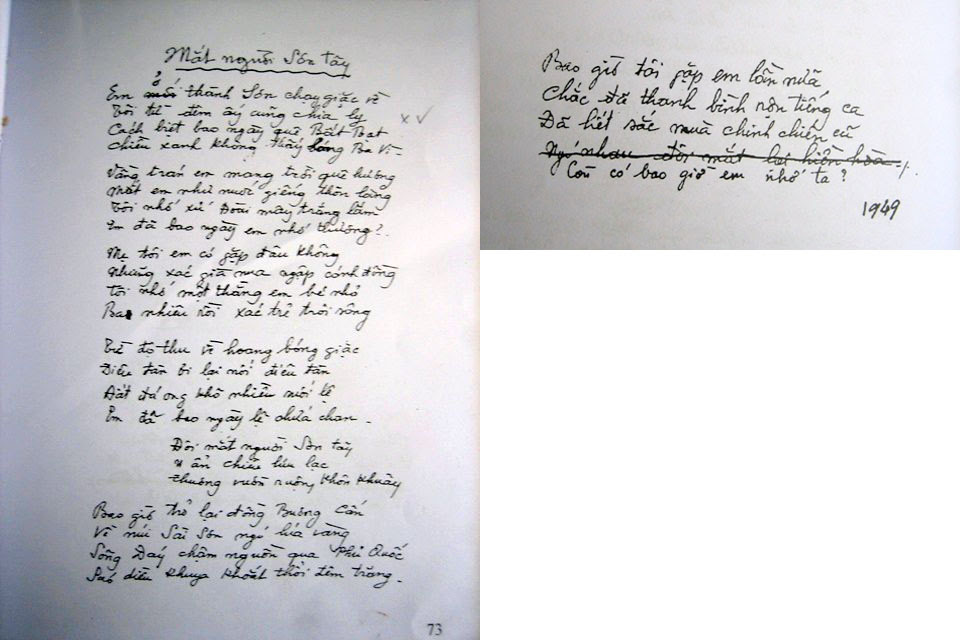 Mắt người Sơn Tây
Em ở thành Sơn chạy giặc về
Tôi từ đêm ấy cũng chia ly
Cách biệt bao ngày quê Bất Bạt
Chiều xanh không thấy bóng Ba Vì -
Vầng trán em mang trời quê hương
Mắt em như nước giếng thôn làng
Tôi nhớ xứ Đoài mây trắng lắm
Em đã bao ngày em nhớ thương?.
Mẹ tôi em có gặp đâu không
Những xác già nua ngập cánh đồng
Tôi nhớ một thằng em bé nhỏ
Bao nhiêu rồi xác trẻ trôi sông
Từ độ thu về hoang bóng giặc
Điêu tàn ôi lại nối điêu tàn
Đất đá ong khô nhiều suối lệ
Em đã bao ngày lệ chứa chan.
Đôi mắt người Sơn Tây
U ẩn chiều lưu lạc
Thương vườn ruộng khôn khuây
Bao giờ trở lại đồng Bương Cấn
Về núi Sài Sơn ngó lúa vàng
Sông Đáy chậm nguồn qua Phủ Quốc
Sáo diều khuya khoắt thổi đêm trăng.
73
Bao giờ tôi gặp em lần nữa
Chắc đã thanh bình rộn tiếng ca
Đã hết sắc mùa chinh chiến cũ
Ngó nhau đôi mắt lại hiền hòa
Còn có bao giờ em nhớ ta?
1949